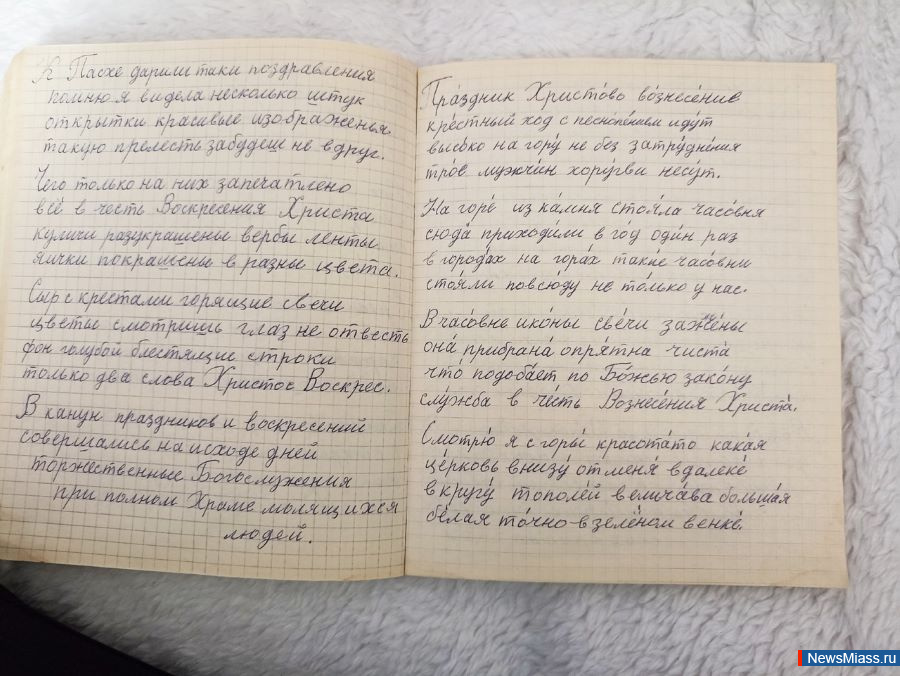 К Пасхе дарили таки поздравления
помню я видела несколько штук
открытки красивые изображенья
такую прелесть забудеш не вдруг.
Чего только на них запечатлено
всё в честь Воскресения Христа
куличи разукрашеные вербы ленты
яички покрашены в разны цвета.
Сыр с крестами горящие свечи
цветы смотришь глаз не отвесть
фон голубой блестящие строки
только два слова Христос Воскрес.
В канун праздников и воскресений
совершались на исходе дней
торжественные Богослужения
при полном Храме молящихся
людей.
Пра́здник Христо́во во́знесе́ние
кре́стный ход с песнопе́нием иду́т
высо́ко на гору́ не без затру́дне́ния
тро́е мужчи́н хору́гви несу́т.
На горе́ из ка́мня стоя́ла часо́вня
сюда́ приходи́ли в год оди́н раз
в города́х на гора́х таки́е часо́вни
стоя́ли повсю́ду не то́лько у нас.
В часо́вне ико́ны све́чи зажже́ны
она́ прибрана́ опря́тна чиста́
что́ подоба́ет по Бо́жью зако́ну
слу́жба в че́сть Вознесе́ния Христа́.
Смотрю́ я с горы́ красота́то кака́я
це́рковь внизу́ от меня́ вдалеке́
в кругу́ тополе́й велича́ва больша́я
бе́лая то́чно в зелёном венке́.
NewsMiass.ru